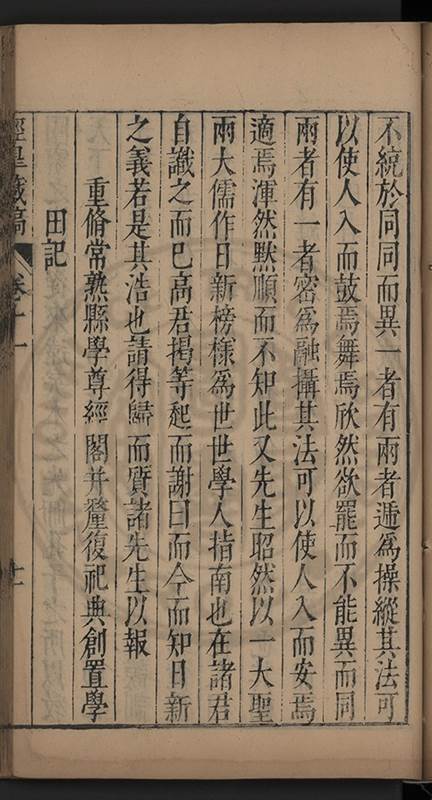 不統於同同而異一者有兩者遞為操縱其法可
以使人入而鼓焉舞焉欣然欲罷而不能異而同
兩者有一者密為融攝其法可以使人入而安焉
適焉渾然默順而不知此又先生昭然以一大聖
兩大儒作日新榜樣為世世學人指南也在諸君
自識之而已高君掲等起而謝曰而今而知日新
之義若是其浩也請得歸而質諸先生以報
重脩常熟縣學尊經閣并釐復祀典創置學
田記
經臯藏稿
卷十一